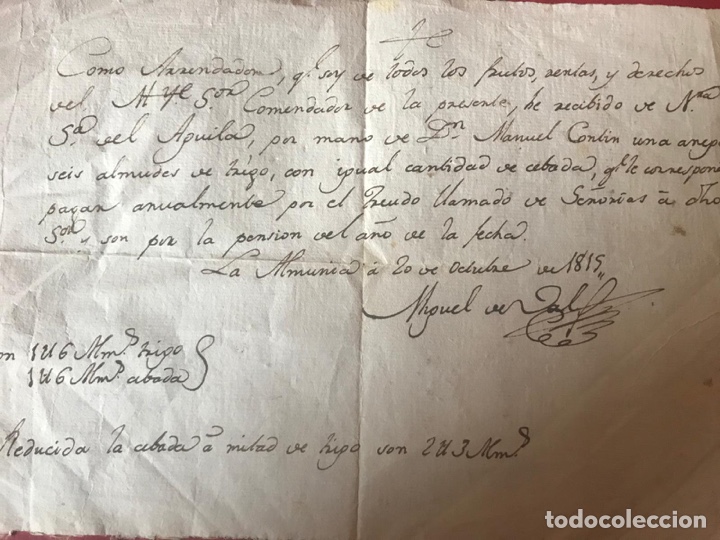 Como Arrendador, q.e soy de todos los frutos, rentas, y derechos
del M Y.e S.or Comendador de la presente, he recibido de N.ra
S.ra del Aguila, por mano de D.n Manuel Contin una aneg
seis almudes de trigo, con igual cantidad de cebada, q.e le correspone
pagar anualmente por el Treudo llamado de Señorias á dho
S.or y son por la pension del año de la fecha.
La Almunia á 20 de Octubre de 1815,,
Miguel de
on 1 U 6 Alm.s trigo
1 U 6 Alm.s cebada
Reducida la cebada á mitad de trigo son 2 U 3 Alm.s
todocoleccion